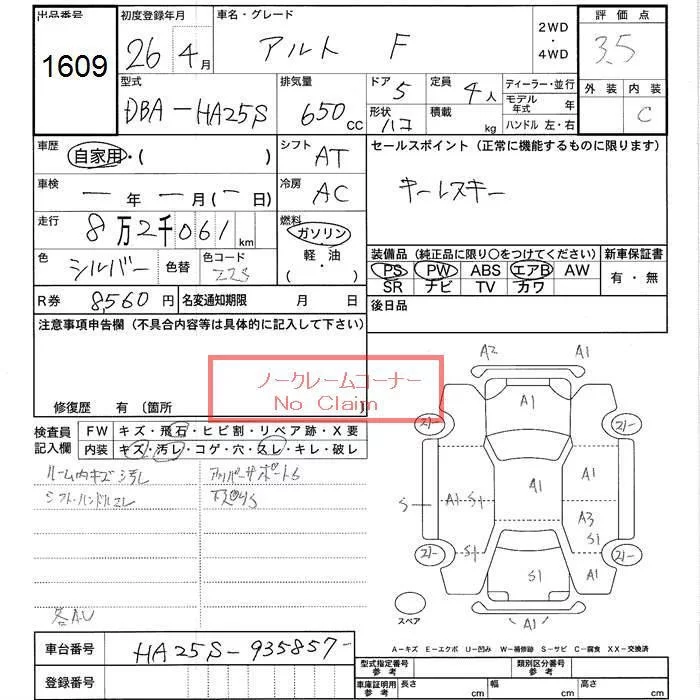 出品番号 初度登録年月 車名・グレード 2WD・4WD 評価点
1609 26 4月 アルト F 3.5
型式 排気量 ドア 5 定員 4人 ディーラー・並行 外装 内装
DBA-HA25S 650cc 形状 ハコ 積載 kg モデル年式 年 C
ハンドル 左・右
車歴 自家用・( ) シフト AT セールスポイント (正常に機能するものに限ります)
車検 一年 一月(一日) 冷房 AC キーレスキー
走行 8万2千061km 燃料 ガソリン 軽・油 ( )
色 シルバー 色替 色コード Z2S
装備品 (純正品に限り○をつけてください) 新車保証書
PS PW ABS エアB AW 有・無
SR ナビ TV カワ
R券 8,560円 名変通知期限 月 日 後日品
注意事項申告欄 (不具合内容等は具体的に記入して下さい)
ノークレームコーナー
No Claim
修復歴 有 〔箇所 〕
検査員記入欄 FW キズ・飛石・ヒビ割・リペア跡・X要
内装 キズ・汚レ・コゲ・穴・スレ・キレ・破レ
ルーム内キズ汚レ
シフト・ハンドルスレ
各A.U
A2 A1
A1
A1 S1 A1 A3
S S1
S1 S1 A1
A1
スペア
A-キズ E-エクボ U-凹み W-補修跡 S-サビ C-腐食 XX-交換済
車台番号 HA25S-935857-
登録番号
型式指定番号 参考 類別区分番号 参考
車庫証明用 参考 長さ cm 幅 cm 高さ cm